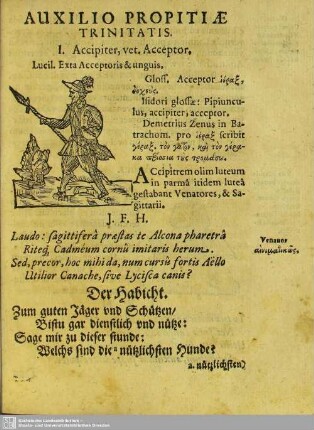 AUXILIO PROPITIÆ
TRINITATIS.
I. Accipiter, vet. Acceptor.
Lucil. Exta Acceptoris & unguis.
Gloss. Acceptor ἱέραξ,
Isidori glossæ: Pipiuncu-
lus, accipiter, acceptor.
Demetrius Zenus in Ba-
trachom. pro ἱέραξ scribit
γέραξ, τὸν
ACcipitrem olim luteum
in parmâ itidem luteâ
gestabant Venatores, & Sa-
gittarii.
J. F. H.
Laudo: sagittiferâ præstas te Alcona pharetrâ
Riteq́; Cadmêum cornû imitaris herum.
Sed, precor, hoc mihi da, num cursûs fortis Aëllo
Utilior Canache, sive Lycisca canis?
Venantur
Der Habicht.
Zum guten Jäger vnd Schützen/
Bistu gar dienstlich vnd nütze:
Sage mir zu dieser stunde:
Welchs sind die a nützlichsten Hunde?
a. nützlichsten)